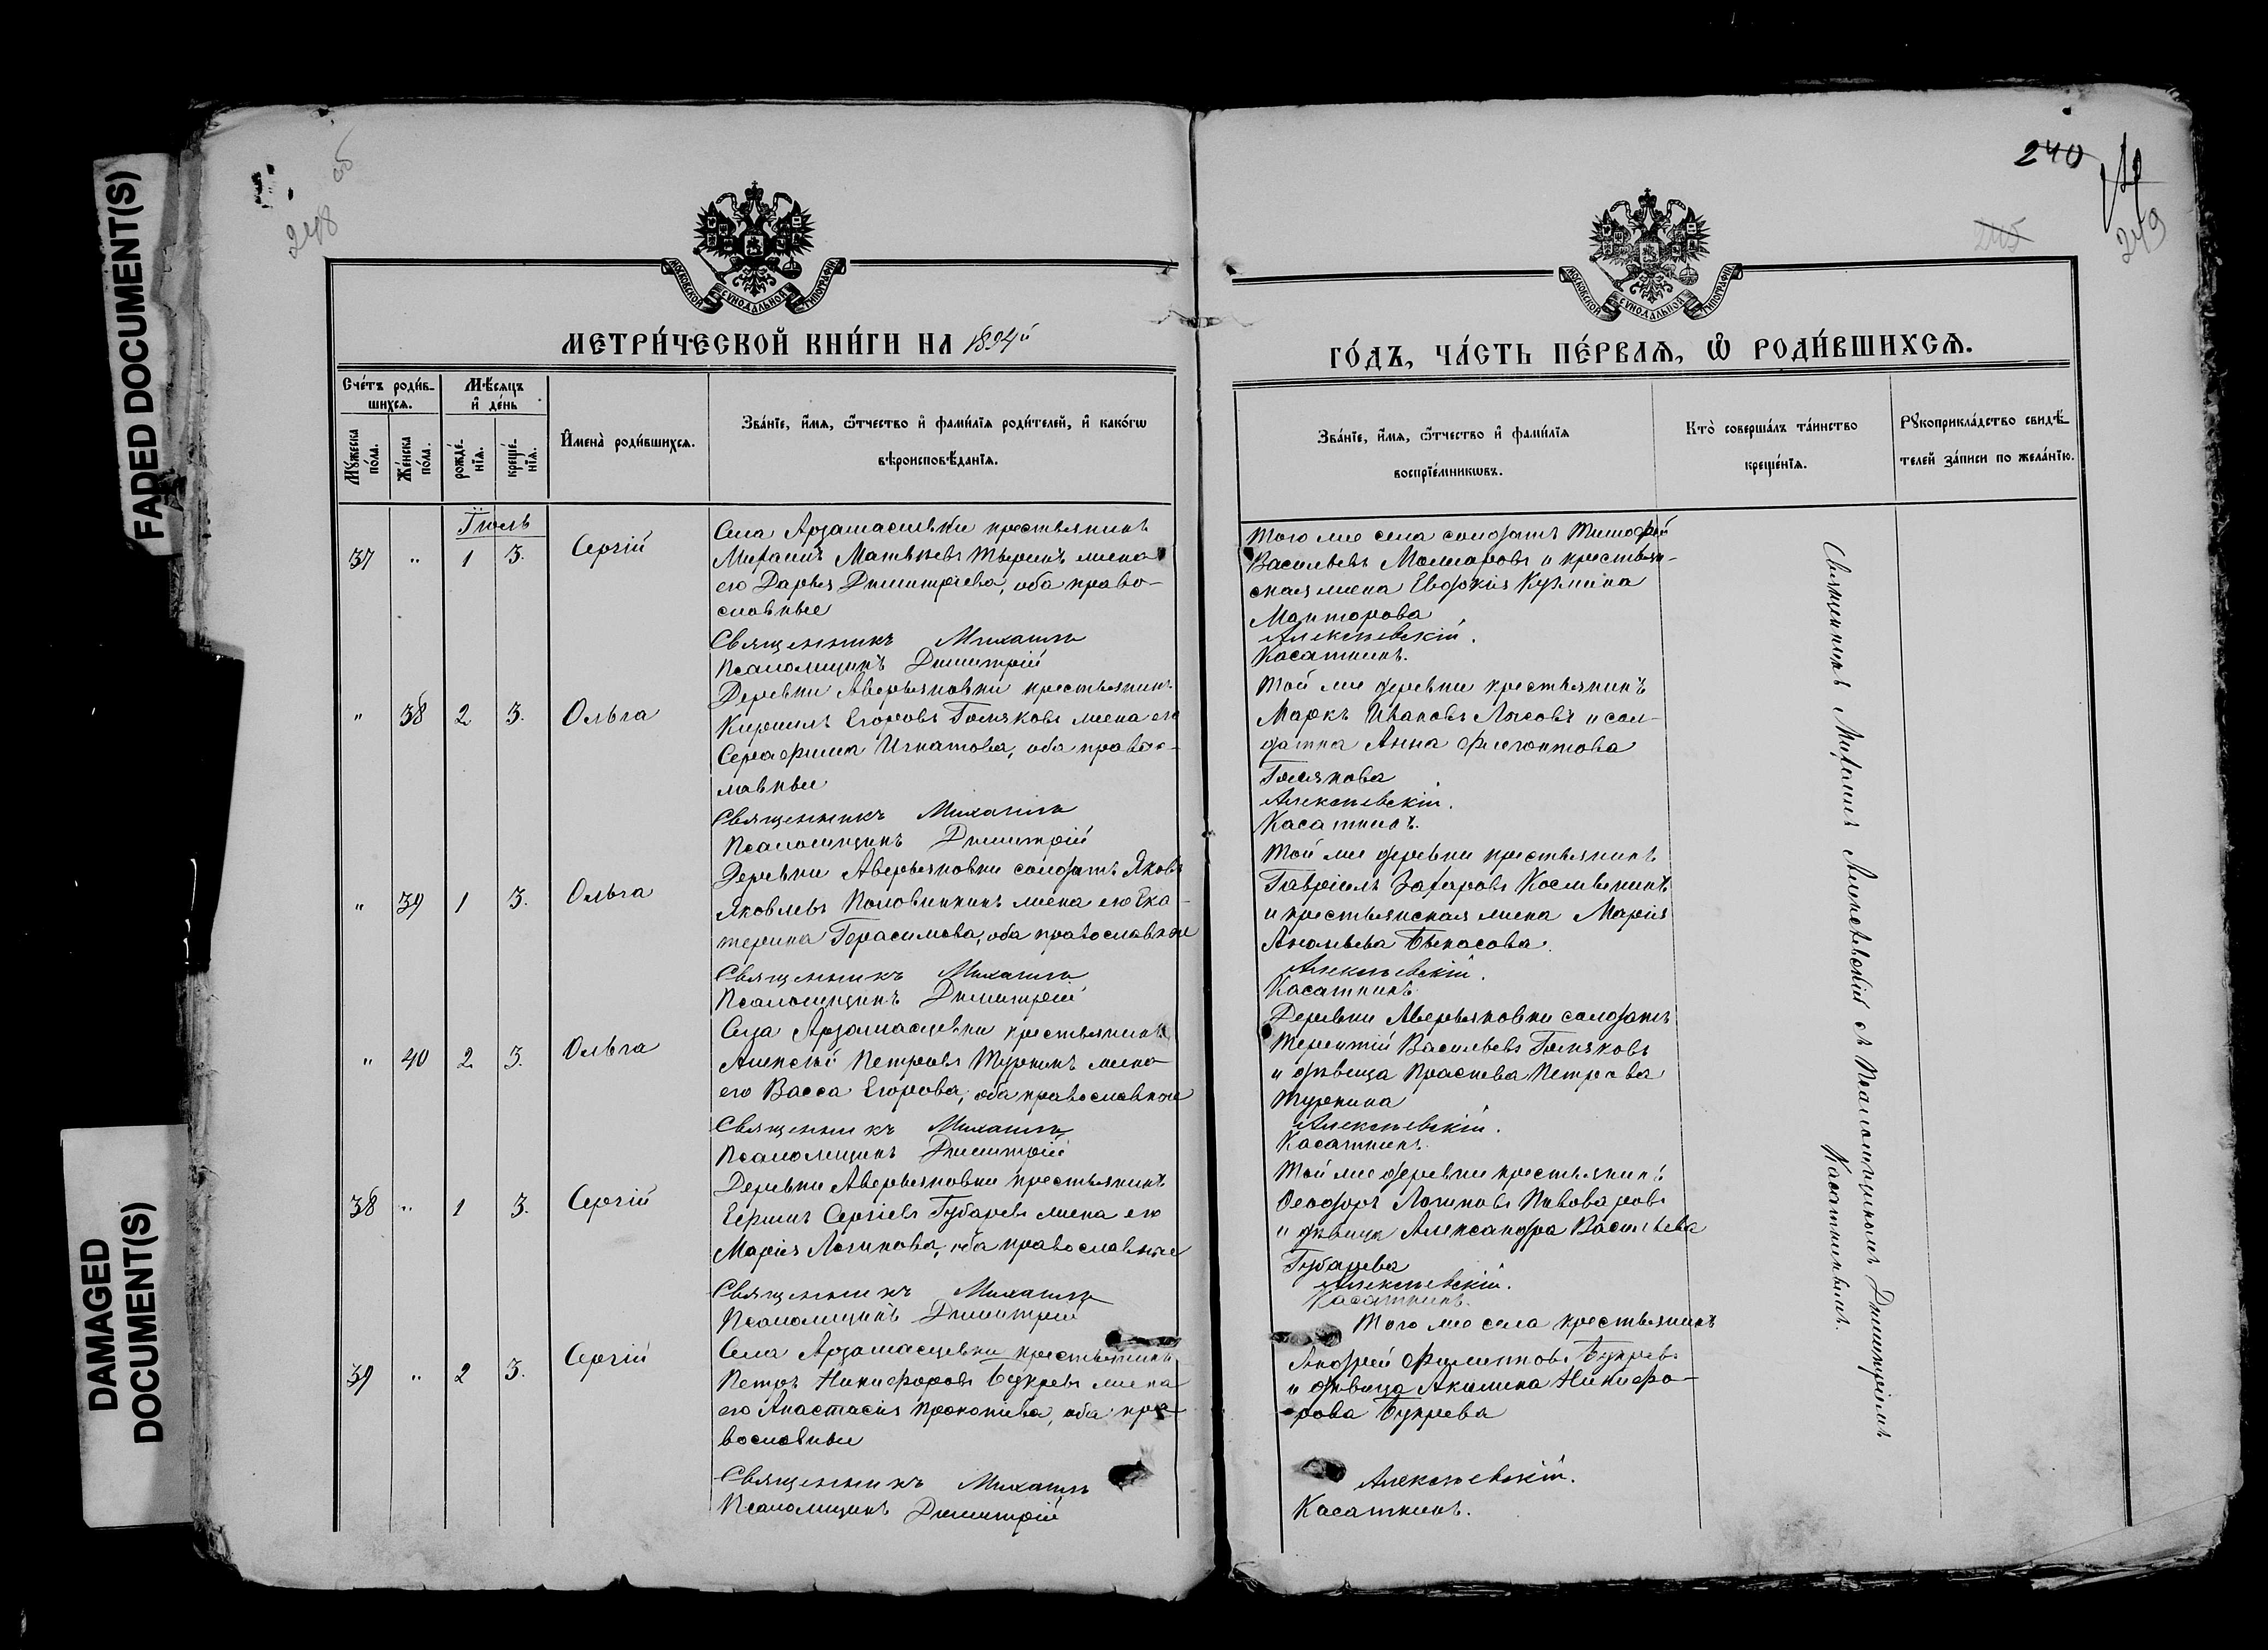 FADED DOCUMENT(S)
DAMAGED DOCUMENT(S)
248 об
240
245
249
МОСКОВСКОЙ СѴНОДАЛЬНОЙ ТИПОГРАФІИ
МОСКОВСКОЙ СѴНОДАЛЬНОЙ ТИПОГРАФІИ
МЕТРИ́ЧЕСКОЙ КНИ́ГИ НА 1894й
ГО́ДЪ, ЧА́СТЬ ПЕ́РВАѦ, Ѽ РОДИ́ВШИХСѦ.
Сче́тъ роди́в-
шихсѧ.
Мꙋ́жеска по́ла.
Же́нска по́ла.
Мѣ́сѧцъ
и҆ де́нь
рожде́-нїѧ.
креще́-нїѧ.
И҆мена̀ роди́вшихсѧ.
Зва́нїе, и҆́мѧ, ѻ҆́тчество и҆ фами́лїѧ роди́телей, и҆ како́гѡ
вѣроисповѣ́данїѧ.
Зва́нїе, и҆́мѧ, ѻ҆́тчество и҆ фами́лїѧ
воспрїе́мникѡвъ.
Кто̀ соверша́лъ та́инство
креще́нїѧ.
Рꙋкоприкла́дство свидѣ́-
телей за́писи по жела́нїю.
Іюль
37 " 1 3. Сергій
Села Арзамасцевки крестьянинъ
Михаилъ Матвѣевъ жена
его Дарья Димитріева, оба право-
славные
Священникъ Михаилъ
Псаломщикъ Димитрій
Того же села солдатъ Тимофей
Васильевъ и крестьян-
ская жена Евдокія Кузмина
Алексѣевскій.
Касаткинъ.
" 38 2 3. Ольга
Деревни Аверьяновки крестьянинъ
Кириллъ Егоровъ Гомяковъ жена его
Серафима Игнатова, оба правос-
лавные
Священникъ Михаилъ
Псаломщикъ Димитрій
Той же деревни крестьянинъ
Маркъ Ивановъ Лысовъ и сол-
датка Анна Флегонтова
Гомякова
Алексѣевскій.
Касаткинъ.
" 39 1 3. Ольга
Деревни Аверьяновки солдатъ Яковъ
Яковлевъ Половинкинъ жена его Ека-
терина Герасимова, оба православные
Священникъ Михаилъ
Псаломщикъ Димитрій
Той же деревни крестьянинъ
Гавріилъ Захаровъ
и крестьянская жена Марія
Ананьева Бекасова.
Алексѣевскій.
Касаткинъ.
" 40 2 3. Ольга
Села Арзамасцевки крестьянинъ
Алексѣй Петровъ Туркинъ жена
его Васса Егорова, оба православные
Священникъ Михаилъ
Псаломщикъ Димитрій
Деревни Аверьяновки солдатъ
Терентій Васильевъ Гомяковъ
и дѣвица Праскева Петрова
Туркина
Алексѣевскій.
Касаткинъ.
38 " 1 3. Сергій
Деревни Аверьяновки крестьянинъ
Ефимъ Сергіевъ Губаревъ жена его
Марія Логинова, оба православные
Священникъ Михаилъ
Псаломщикъ Димитрій
Той же деревни крестьянинъ
Ѳеодоръ Логиновъ Пивоваровъ
и дѣвица Александра Васильева
Губарева
Алексѣевскій.
Касаткинъ.
39 " 2 3. Сергій
Села Арзамасцевки крестьянинъ
Петръ Никифоровъ Букревъ жена
его Анастасія Прокопіева, оба пра-
вославные
Священникъ Михаилъ
Псаломщикъ Димитрій
Того же села крестьянинъ
Андрей Филипповъ Букревъ
и дѣвица Акилина Никифо-
рова Букрева
Алексѣевскій.
Касаткинъ.
Священникъ Михаилъ Алексѣевскій съ Псаломщикомъ Димитріемъ
Касаткинымъ.